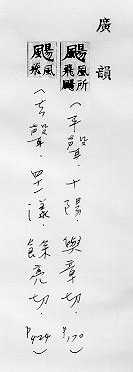 廣韻
颺風所飛颺(平聲．十陽．與章切．P.170)
颺風飛(去聲．四一漾．餘亮切．P.424)